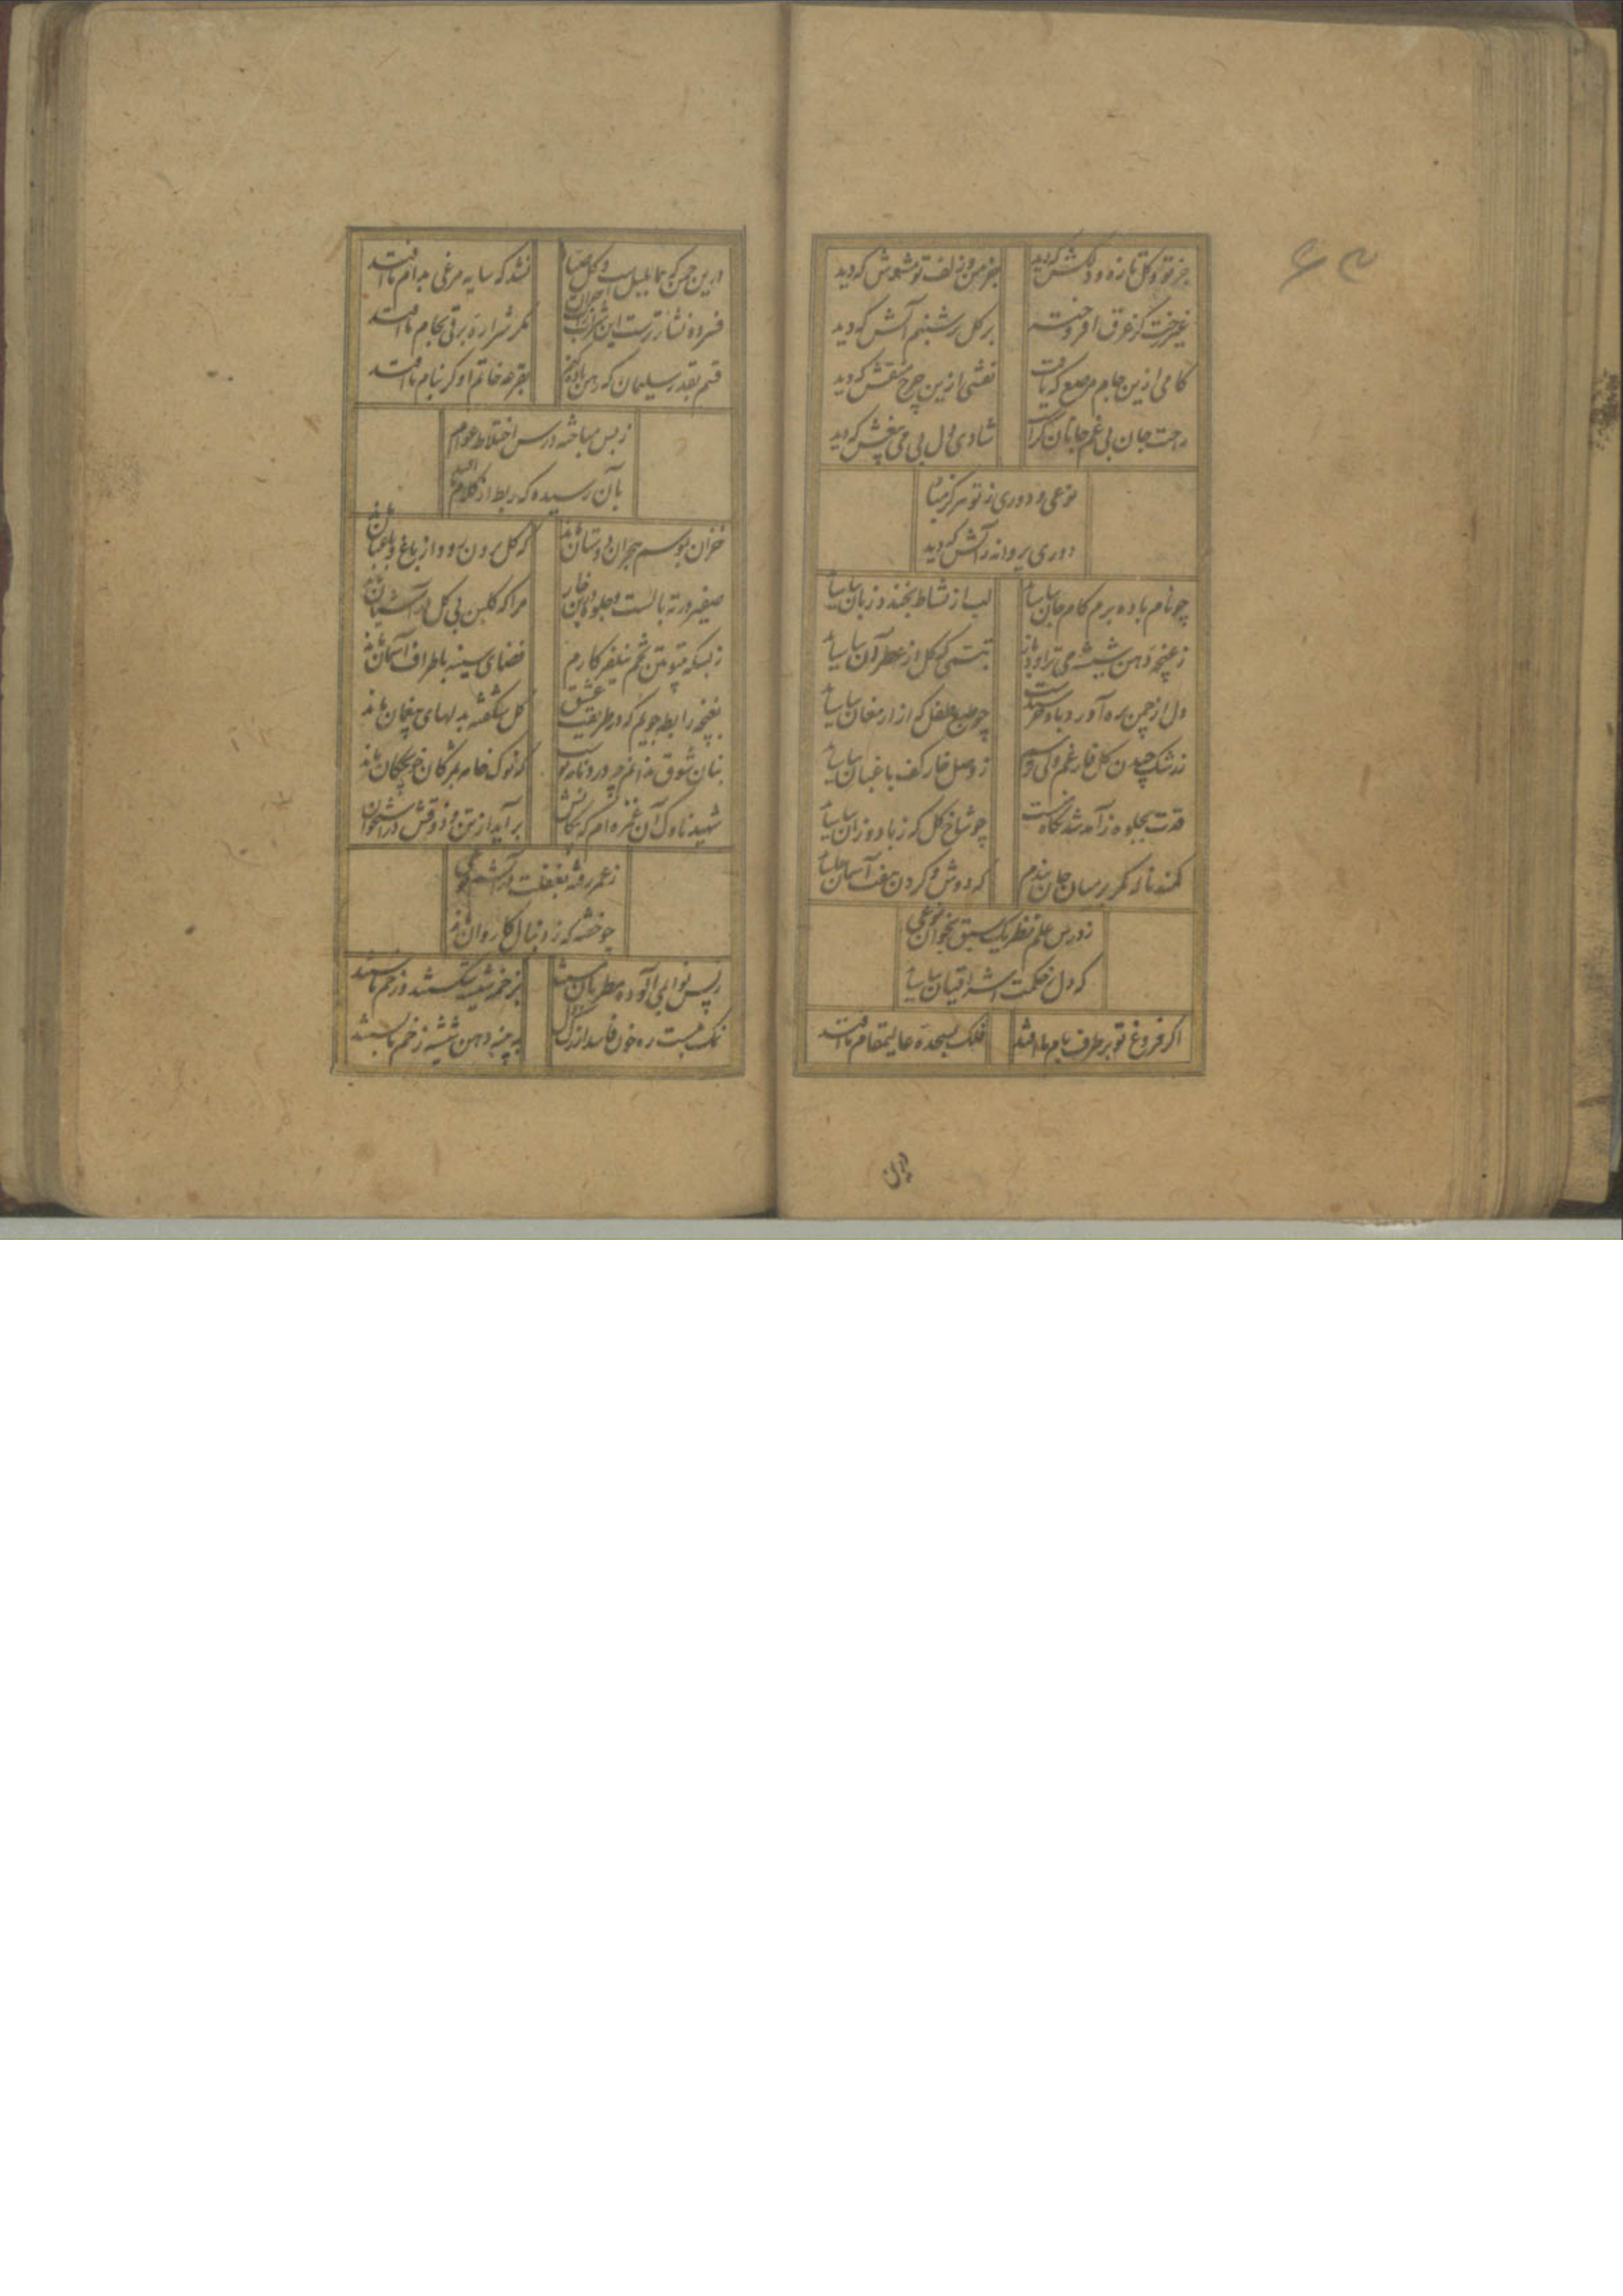 جز تو گل تازه و دلکش که دید
جز من و زلف تو مشوش که دید
غیر رخت کز عرق افروخته
بر گل تر شبنم آتش که دید
کامی ازین جام مرصع که یافت
نقشی ازین چرخ منقش که دید
راحت جان بی غم جانان کراست
شادی دل بی می بیغش که دید
نوعی و دوری ز تو هرگز مباد
دوری پروانه ز آتش که دید
چو نام باده برم کام جان بیاساید
لب از نشاط بخندد زبان بیاساید
ز غنچه دهن شیشه می تراود باز
تبسمی که گل از عطر آن بیاساید
دل از چمن ره آورد باد خرسندست
چو طبع طفل که از ارمغان بیاساید
ز رشک چیدن گل فارغم ولی
ز وصل خار کف باغبان بیاساید
قدت بجلوه ز آمد شد نگاه
چو شاخ گل که ز باد وزان بیاساید
کمند ناز کمر بر میان جان بندم
که دوش و گردن هفت آسمان بیاساید
ز درس علم نظر یک سبق بخوان نوعی
که دل ز حکمت اشراقیان بیاساید
اگر فروغ تو بر طرف بام ما افتد
فلک بسجده عالیمقام ما افتد
درین
درین چمن که هما بلبل است و گل
نشد که سایه مرغی بدام ما افتد
فسرده نشاتر ست این شراب
مگر شراره برقی بجام ما افتد
قسم بقدر سلیمان که رهن باده کنم
بقرعه خاتم او گر بنام ما افتد
ز بس مباحثه درس اختلاط عوام
بآن رسیده که ربط از کلام ما افتد
خزان بموسم هجران دوستان ماند
که گل برون رود از باغ و باغبان ماند
صفیر در ته بالست و جلوه در بن خار
مرا که گلبن بی گل در آشیان ماند
ز بسکه بتن تخم نیلوفر کارم
فضای سینه باطراف آسمان ماند
بغنچه رابطه جویم که در طریقت عشق
گل شگفته بدلهای بیغمان ماند
بنان شوق ندانم چه درد نامه نوشت
که نوک خامه بمژگان خونچکان ماند
شهید ناوک آن غمزه ام که پیکانش
بر آید از تن و ذوقش در استخوان ماند
ز عمر رفته بغفلت در آتشم نوعی
چو خفته که ز دنبال کاروان ماند
پس نوا لب آلوده مطربان بستند
بزخم شیشه شکستند و زخم ما بستند
نمک نبست ره خون فاسد از رگ دل
به پنبه دهن شیشه زخم ما بستند